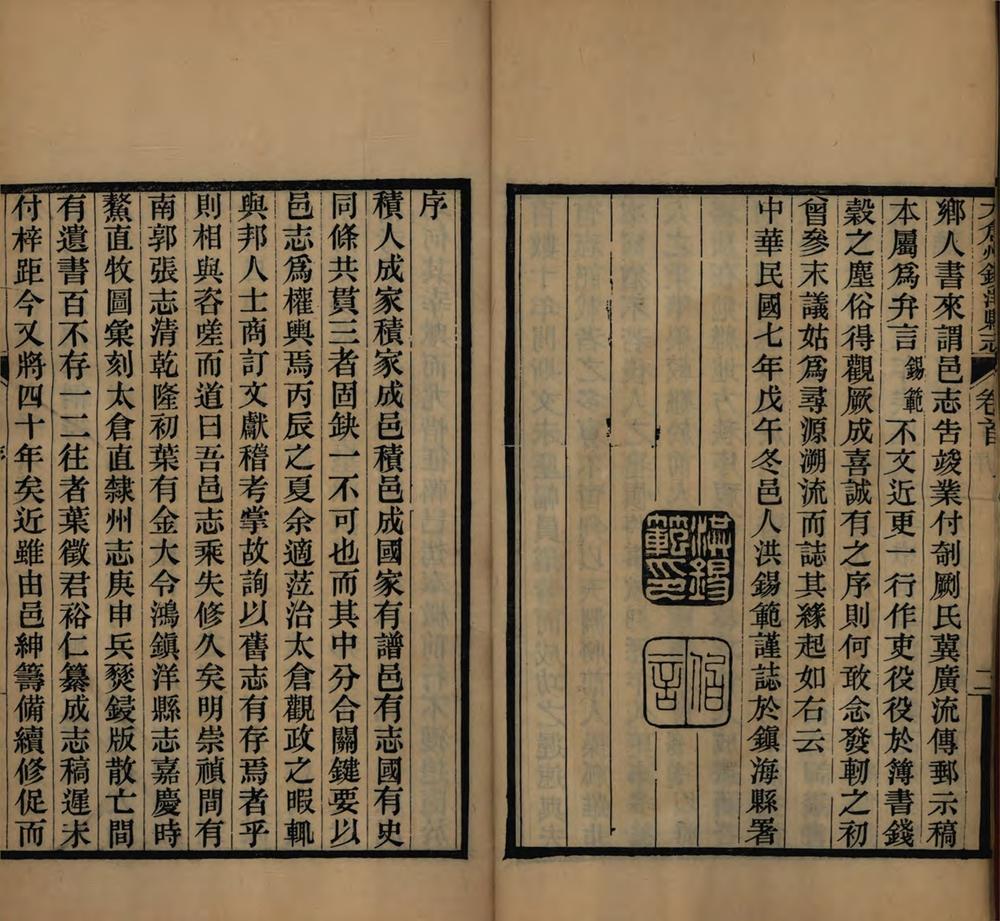 太倉州鎮洋縣志 卷首
鄉人書來謂邑志告竣業付剞劂氏冀廣流傳郵示稿
本屬爲弁言錫範不文近更一行作吏役役於簿書錢
穀之塵俗得觀厥成喜誠有之序則何敢念發軔之初
曾參末議姑爲尋源溯流而誌其緣起如右云
中華民國七年戊午冬邑人洪錫範謹誌於鎮海縣署
洪錫範印
伯言
序
積人成家積家成邑積邑成國家有譜邑有志國有史
同條共貫三者固缺一不可也而其中分合關鍵要以
邑志爲權輿焉丙辰之夏余適蒞治太倉觀政之暇輒
與邦人士商訂文獻稽考掌故詢以舊志有存焉者乎
則相與咨嗟而道曰吾邑志乘失修久矣明崇禎間有
南郭張志清乾隆初葉有金大令鴻鎮洋縣志嘉慶時
鰲直牧圖彙刻太倉直隸州志庚申兵燹鋟版散亡間
有遺書百不存一二往者葉徵君裕仁纂成志稿遲未
付梓距今又將四十年矣近雖由邑紳籌備續修促而